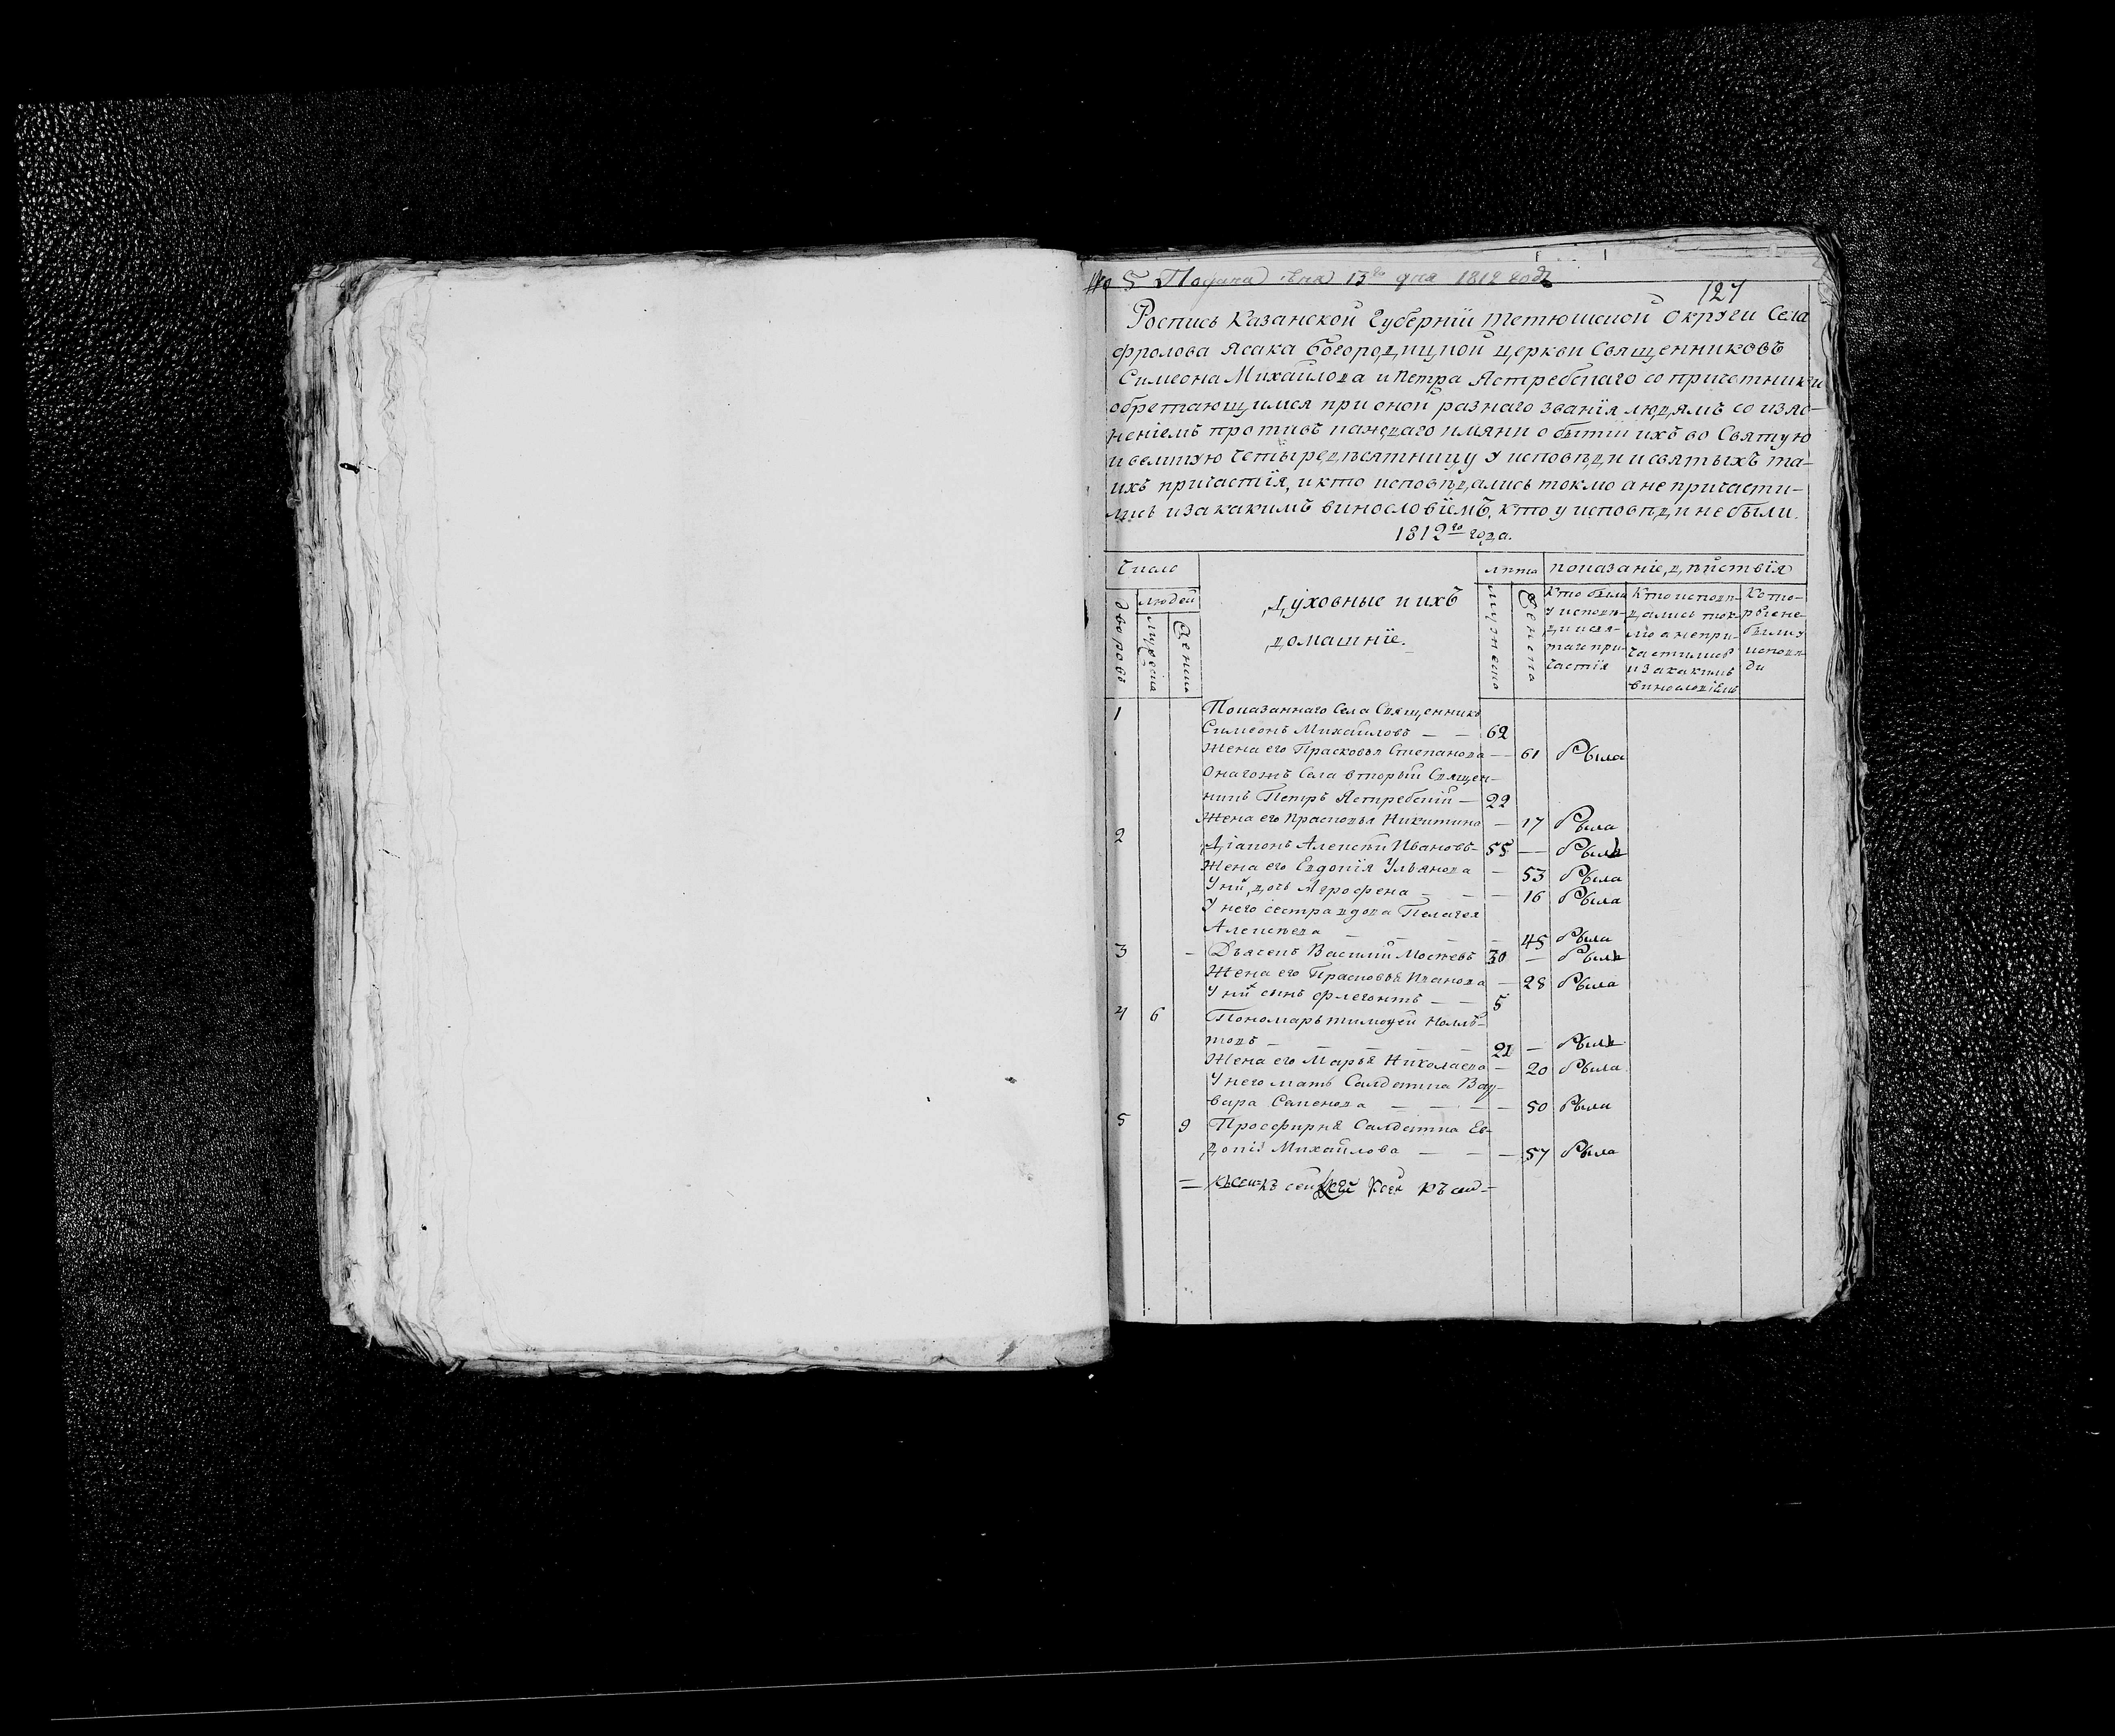 № 5 Подана юня 13го дня 1812 года
127
Роспись Казанской Губернїи Тетюшской округи Села
Фролова Ясака Богородицкой церкви Священниковъ
Симеона Михайлова и Петра Ястребскаго со причетники
обретающимся при оной разнаго званїя людямъ со изяс-
ненїемъ противъ каждаго имяни о бытїи ихъ во Святую
и великую четыредесятницу у исповѣди и святыхъ та-
инъ причастїя, и кто исповѣдались токмо а не причасти-
лись и за какимъ винословїемъ, кто у исповѣди не были.
1812го года.
Число
лѣта
показанїе дѣйствїя
людей
дворовъ
мужеска
Женска
Духовные и ихъ
домашнїе.
мужеска
Женска
Кто были
у исповѣ-
ди и свя-
таго при-
частїя
Кто исповѣ-
дались ток-
мо а непри-
частились
и за какимъ
винословїемъ
Кото-
рые не-
были у
исповѣ-
ди
1 Показаннаго Села Священникъ
Симеонъ Михайловъ — — 62
Жена его Прасковья Степанова — 61 Была
Онагожъ Села вторый Священ-
никъ Петръ Ястребскїй — 22
Жена его Прасковья Никитина — 17 Была
2 Дїаконъ Алексѣй Ивановъ — 55 — Былъ
Жена его Евдокїя Ульянова — 53 Была
У них дочь Агрофена — — — 16 Была
У него сестра вдова Пелагея
Алексѣева — — — — 45 Была
3 — Дьячекъ Василий 30 — Былъ
Жена его Прасковья Иванова — 28 Была
У них сынъ Флегонтъ — — 5
4 6 Пономарь Тимофей
— — — — 21 — Былъ
Жена его Марья Николаева — 20 Была
У него мать Салдатка Вар-
вара Семенова — — — — 50 Была
5 9 Просфирня Салдатка Ев-
докїя Михайлова — — — 57 Была